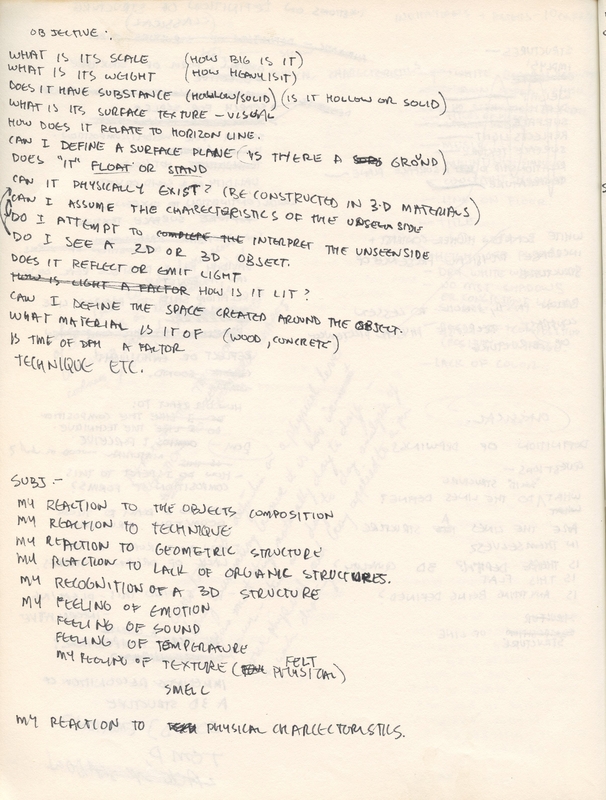 OBJECTIVE:.
WHAT IS ITS SCALE (HOW BIG IS IT)
WHAT IS ITS WEIGHT (HOW HEAVY IS IT)
DOES IT HAVE SUBSTANCE (HOLLOW/SOLID) (IS IT HOLLOW OR SOLID)
WHAT IS ITS SURFACE TEXTURE - VISUAL
HOW DOES IT RELATE TO HORIZON LINE.
CAN I DEFINE A SURFACE PLANE (IS THERE A GROUND)
DOES "IT" FLOAT OR STAND
CAN IT PHYSICALLY EXIST? (BE CONSTRUCTED IN 3-D MATERIALS)
CAN I ASSUME THE CHARECTORISTICS OF THE UNSEEN SIDE
DO I ATTEMPT TO COMPLETE THE INTERPRET THE UNSEENSIDE
DO I SEE A 2D OR 3D OBJECT.
DOES IT REFLECT OR EMIT LIGHT
HOW IS LIGHT A FACTOR HOW IS IT LIT?
CAN I DEFINE THE SPACE CREATED AROUND THE OBJECT.
WHAT MATERIAL IS IT OF (WOOD, CONCRETE)
IS TIME OF DAY A FACTOR
TECHNIQUE ETC.
SUBJ.-
MY REACTION TO THE OBJECTS COMPOSITION
MY REACTION TO TECHNIQUE
MY REACTION TO GEOMETRIC STRUCTURE
MY REACTION TO LACK OF ORGANIC STRUCTURES.
MY RECOGNITION OF A 3D STRUCTURE
MY FEELING OF EMOTION
FEELING OF SOUND
FEELING OF TEMPERATURE
MY FEELING OF TEXTURE (FELT PHYSICAL)
SMELL
MY REACTION TO PHYSICAL CHARECTORISTICS.